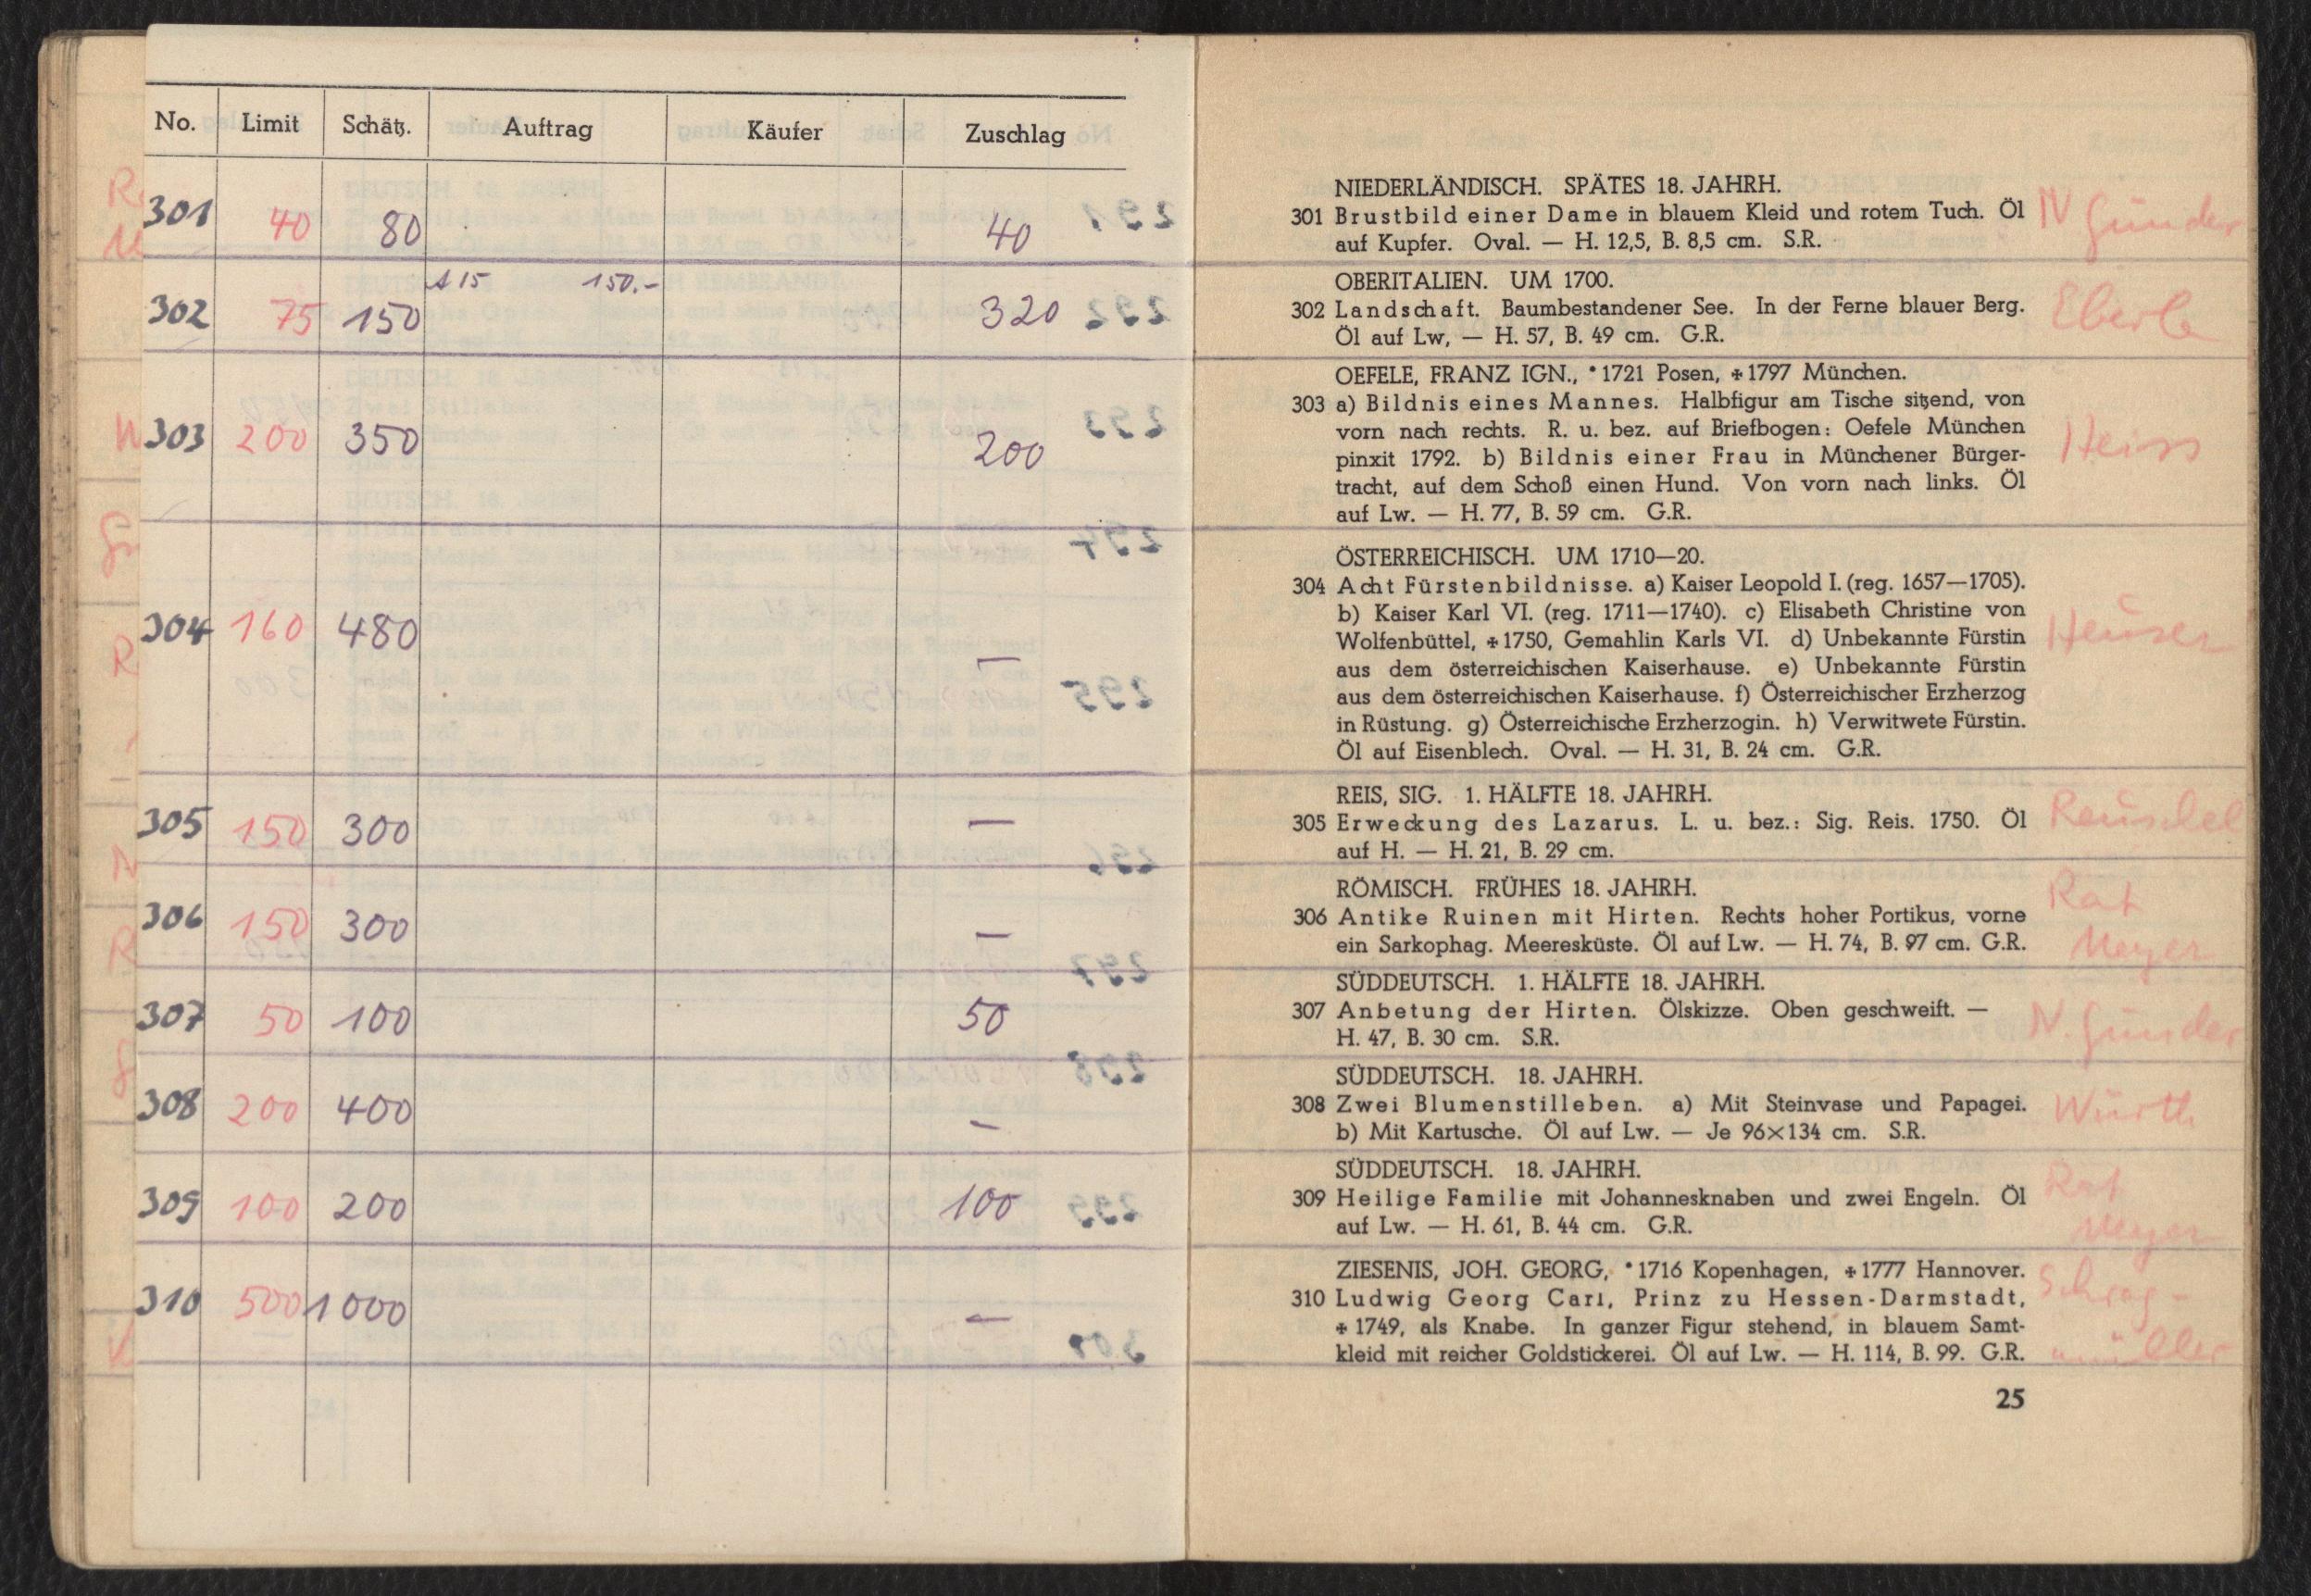 No. Limit Schätz. Auftrag Käufer Zuschlag
301 40 80 40
302 75 150 A 15 150.- 320
303 200 350 200
304 160 480 —
305 150 300 —
306 150 300 —
307 50 100 50
308 200 400 —
309 100 200 100
310 500 1000 —
NIEDERLÄNDISCH. SPÄTES 18. JAHRH.
301 Brustbild einer Dame in blauem Kleid und rotem Tuch. Öl
auf Kupfer. Oval. — H. 12,5, B. 8,5 cm. S.R.
N Günder
OBERITALIEN. UM 1700.
302 Landschaft. Baumbestandener See. In der Ferne blauer Berg.
Öl auf Lw, — H. 57, B. 49 cm. G.R.
Eberle
OEFELE, FRANZ IGN., * 1721 Posen, ✠ 1797 München.
303 a) Bildnis eines Mannes. Halbfigur am Tische sitzend, von
vorn nach rechts. R. u. bez. auf Briefbogen: Oefele München
pinxit 1792. b) Bildnis einer Frau in Münchener Bürger-
tracht, auf dem Schoß einen Hund. Von vorn nach links. Öl
auf Lw. — H. 77, B. 59 cm. G.R.
Heiss
ÖSTERREICHISCH. UM 1710—20.
304 Acht Fürstenbildnisse. a) Kaiser Leopold I. (reg. 1657—1705).
b) Kaiser Karl VI. (reg. 1711—1740). c) Elisabeth Christine von
Wolfenbüttel, ✠ 1750, Gemahlin Karls VI. d) Unbekannte Fürstin
aus dem österreichischen Kaiserhause. e) Unbekannte Fürstin
aus dem österreichischen Kaiserhause. f) Österreichischer Erzherzog
in Rüstung. g) Österreichische Erzherzogin. h) Verwitwete Fürstin.
Öl auf Eisenblech. Oval. — H. 31, B. 24 cm. G.R.
Heuser
REIS, SIG. 1. HÄLFTE 18. JAHRH.
305 Erweckung des Lazarus. L. u. bez.: Sig. Reis. 1750. Öl
auf H. — H. 21, B. 29 cm.
Reuschel
RÖMISCH. FRÜHES 18. JAHRH.
306 Antike Ruinen mit Hirten. Rechts hoher Portikus, vorne
ein Sarkophag. Meeresküste. Öl auf Lw. — H. 74, B. 97 cm. G.R.
Rat
Meyer
SÜDDEUTSCH. 1. HÄLFTE 18. JAHRH.
307 Anbetung der Hirten. Ölskizze. Oben geschweift. —
H. 47, B. 30 cm. S.R.
N. Günder
SÜDDEUTSCH. 18. JAHRH.
308 Zwei Blumenstilleben. a) Mit Steinvase und Papagei.
b) Mit Kartusche. Öl auf Lw. — Je 96×134 cm. S.R.
Würth
SÜDDEUTSCH. 18. JAHRH.
309 Heilige Familie mit Johannesknaben und zwei Engeln. Öl
auf Lw. — H. 61, B. 44 cm. G.R.
Rat
Meyer
ZIESENIS, JOH. GEORG, * 1716 Kopenhagen, ✠ 1777 Hannover.
310 Ludwig Georg Carl, Prinz zu Hessen-Darmstadt,
✠ 1749, als Knabe. In ganzer Figur stehend, in blauem Samt-
kleid mit reicher Goldstickerei. Öl auf Lw. — H. 114, B. 99. G.R.
Schrag-
müller
25